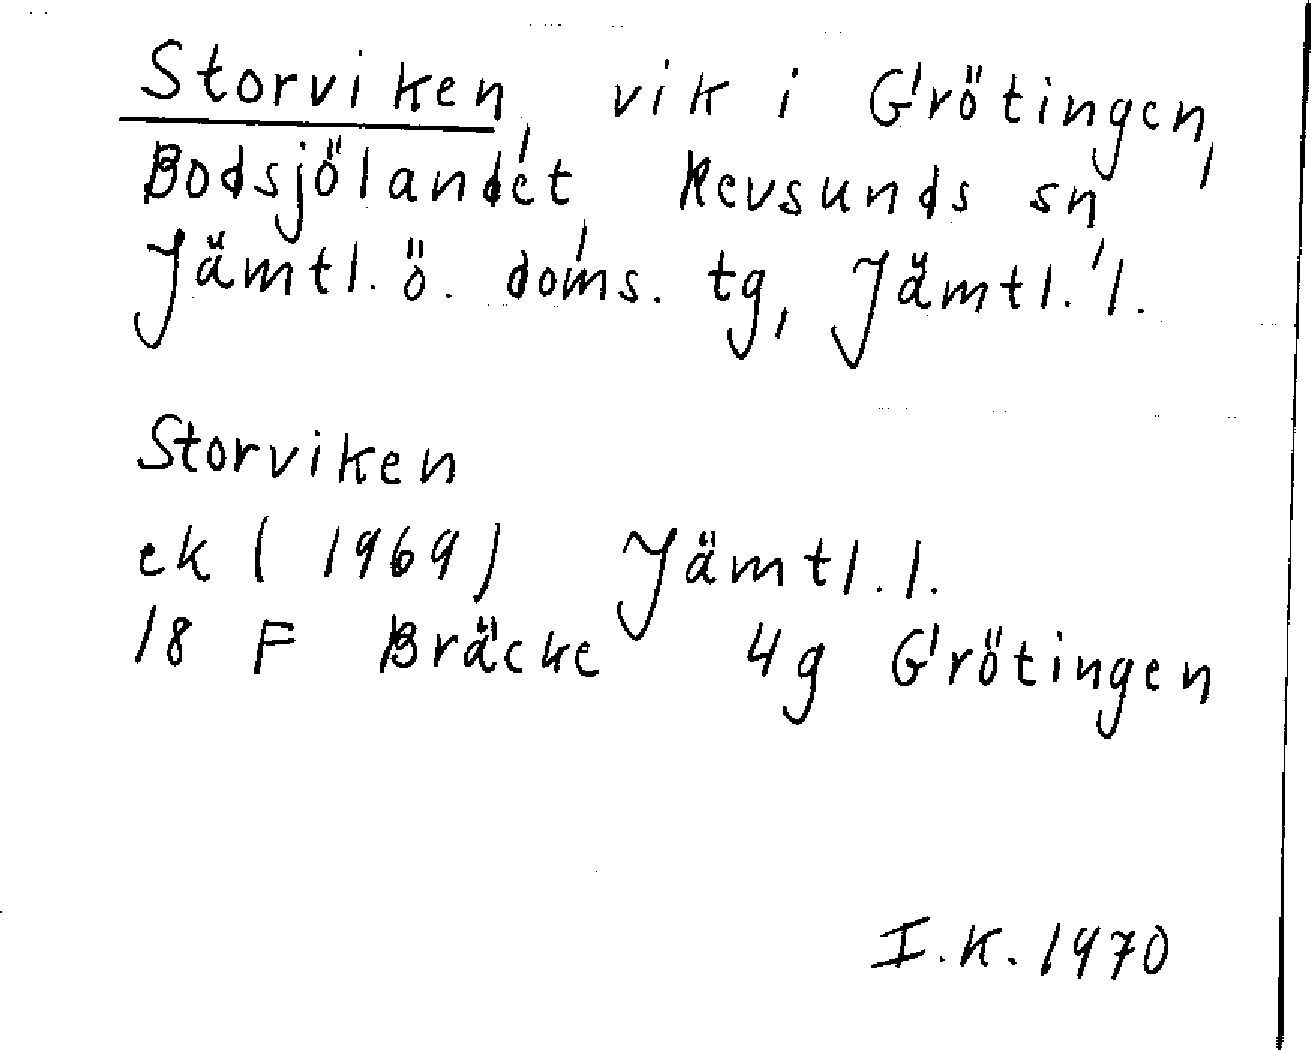 Storviken, vik i Grötingen,
Bodsjölandet, Revsunds sn,
Jämtl. ö. doms. tg, Jämtl. l.
Storviken
ek (1969) Jämtl. l.
18 F Bräcke 4g Grötingen
I.K. 1970